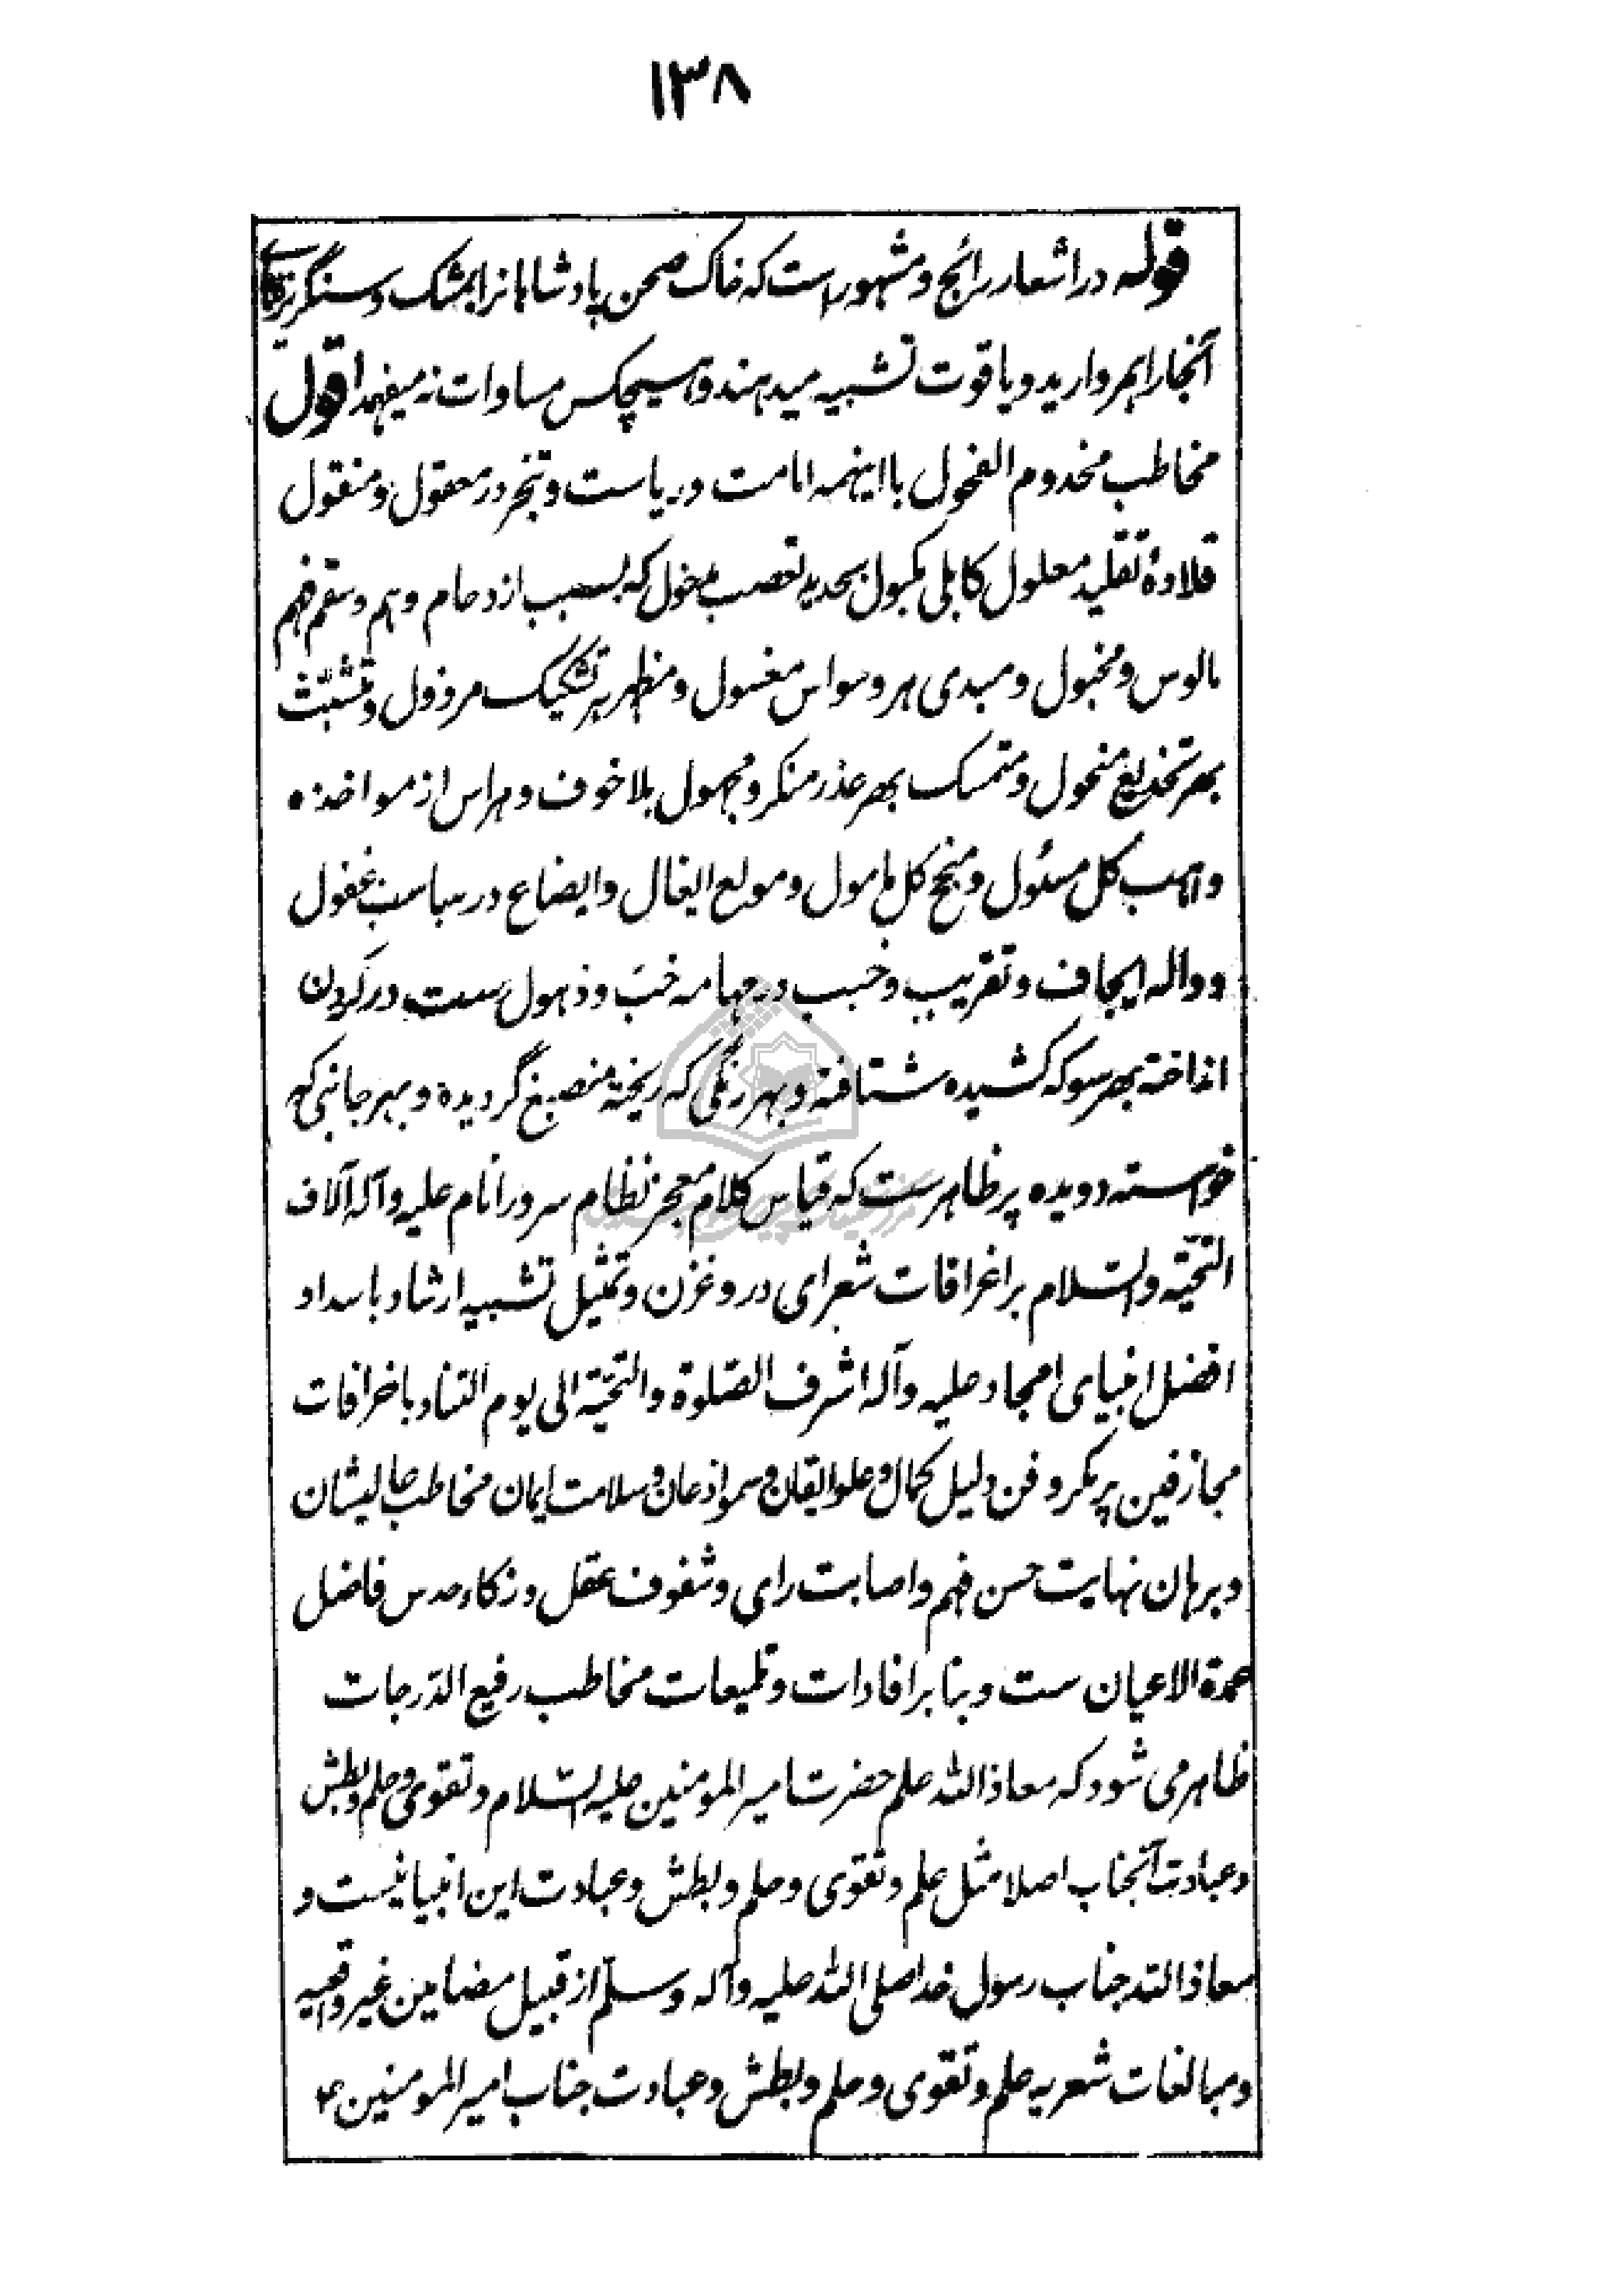 ۱۳۸
قوله در اشعار رائج و مشهور است که خاک صحن پادشاهانرا بمشک و سنگریزهای
آنجا را بمروارید و یاقوت تشبیه میدهند و هیچکس مساوات نه میفهمد اقول
مخاطب مخدوم الفحول با اینهمه امامت و ریاست و تبحر در معقول و منقول
قلادهٔ تقلید معلول کابلی مکبول بحدید تعصب مخول که بسبب ازدحام وهم و سقم فهم
مالوس و مخبول و مبدی هر وسواس مغسول و مظهر هر تشکیک مرذول و متشبث
بهر تخدیع منحول و متمسک بهر عذر منکر و مجهول بلا خوف و هراس از مواخذه
واهب کل مسئول و منجح کل مامول و مولع ایغال و ایضاع در سباسب غفول
و واله ایجاف و تقریب و خبب در مهامه خبّ و ذهول ست در گردن
انداخته بهر سو که کشیده شتافته و بهر رنگی که ریخته منصبغ گردیده و بهر جانبی که
خواسته دویده پر ظاهرست که قیاس کلام معجز نظام سرور انام علیه و آله آلاف
التحیّة والسّلام بر اغراقات شعرای دروغزن و تمثیل تشبیه ارشاد با سداد
افضل انبیای امجاد علیه و آله اشرف الصّلوة والتحیّة الی یوم التناد با خرافات
مجازفین پر مکر و فن دلیل کمال و علو ایقان و سمو اذعان و سلامت ایمان مخاطب عالیشان
و برهان نهایت حسن فهم و اصابت رای و شفوف عقل و زکاء حدس فاضل
عمدة الاعیان ست و بنا بر افادات و تلمیعات مخاطب رفیع الدّرجات
ظاهر می شود که معاذ الله علم حضرت امیر المومنین علیه السّلام و تقوی و حلم و بطش
و عبادت آنجناب اصلا مثل علم و تقوی و حلم و بطش و عبادت این انبیا نیست و
معاذ الله جناب رسول خدا صلی الله علیه و آله و سلّم از قبیل مضامین غیر واقعیه
و مبالغات شعریه علم و تقوی و حلم و بطش و عبادت جناب امیر المومنین ع